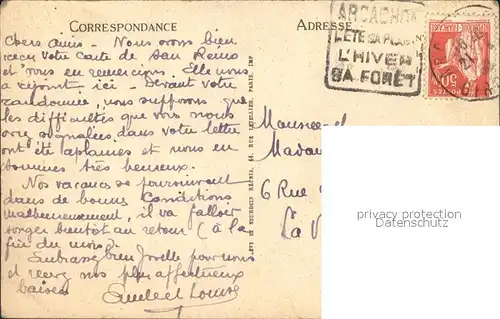 CORRESPONDANCE
ADRESSE
Chers amis - Nous avons bien
reçu votre Carte de San Remo
et vous en remercions. Elle nous
a rejoint ici - Devant votre
randonnée, nous supposons que
les difficultés que vous nous
avez signalées dans votre lettre
ont été aplanies et nous en
sommes très heureux.
Nos vacances se poursuivent
dans de bonnes Conditions
malheureusement, il va falloir
songer bientôt au retour (à la
fin du mois).
bien Joelle pour nous
et recevez nos plus affectueux
baisers
Louise
ARCACHON
L'ÉTÉ SA PLAGE
L'HIVER
SA FORÊT
50
POSTES
Monsieur et
Madame
6 Rue
La V
privacy protection
Datenschutz